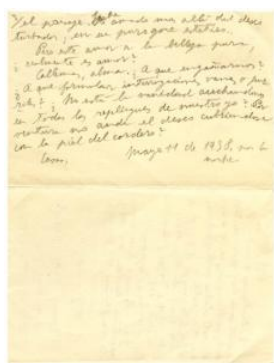 Y el paraje. Está amado mas allá del deseo
turbador, en su puro goce estético.
Pero este amor a la belleza pura,
¿realmente es amor?
Callemos, alma. ¿A que engañarnos?
¿A que formular interrogaciones vanas o pue
riles? ¿No está la vanidad asechandonos
en todos los repliegues de nuestro yo? Por
ventura no anda el deseo cubriendose
con la piel del cordero?
mayo 11 de 1938, por la
noche.